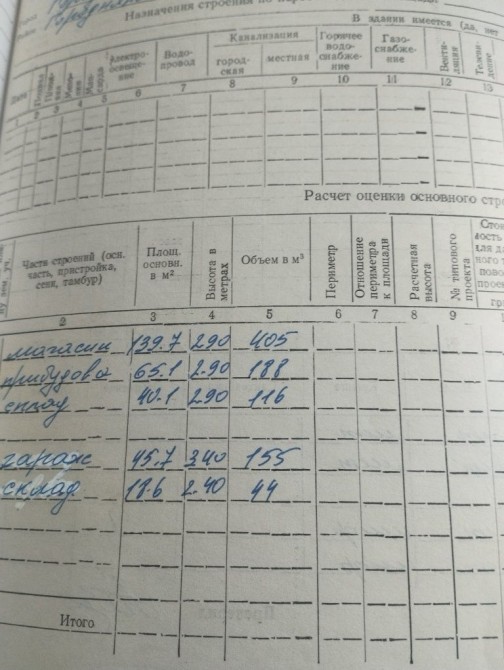 Назначения строения по
В здании имеется (да, нет
Электро-освеще-ние Водо-провод Канализация Горячее водо-снабже-ние Газо-снабже-ние Венти-ляция
город-ская местная
1 2 3 4 5 6 7 8 9 10 11 12 13
Расчет оценки основного стро
Части строений (осн. часть, пристройка, сени, тамбур) Площ. основн. в м² Высота в метрах Объем в м³ Периметр Отношение периметра к площади Расчетная высота № типового проекта
2 3 4 5 6 7 8 9
магасин 139.7 290 405
прибудова 65.1 2.90 188
склад 40.1 290 116
гараж 45.7 340 155
склад 18.6 2.40 44
Итого